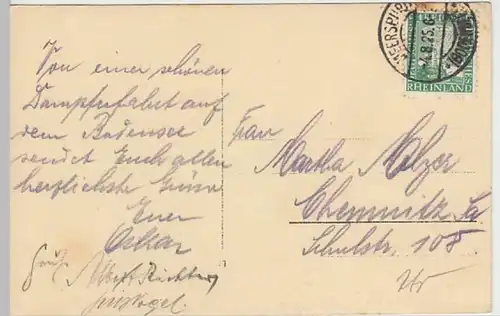 Von einer schönen
Dampferfahrt auf
dem Bodensee
sendet Euch allen
herzlichste Grüße
Euer
Oskar
Albert Richter
Frau
Martha Melzer
Chemnitz Sa
Schulstr. 108
MEERSBURG (BODENSEE)
-4.8.25.
RHEINLAND